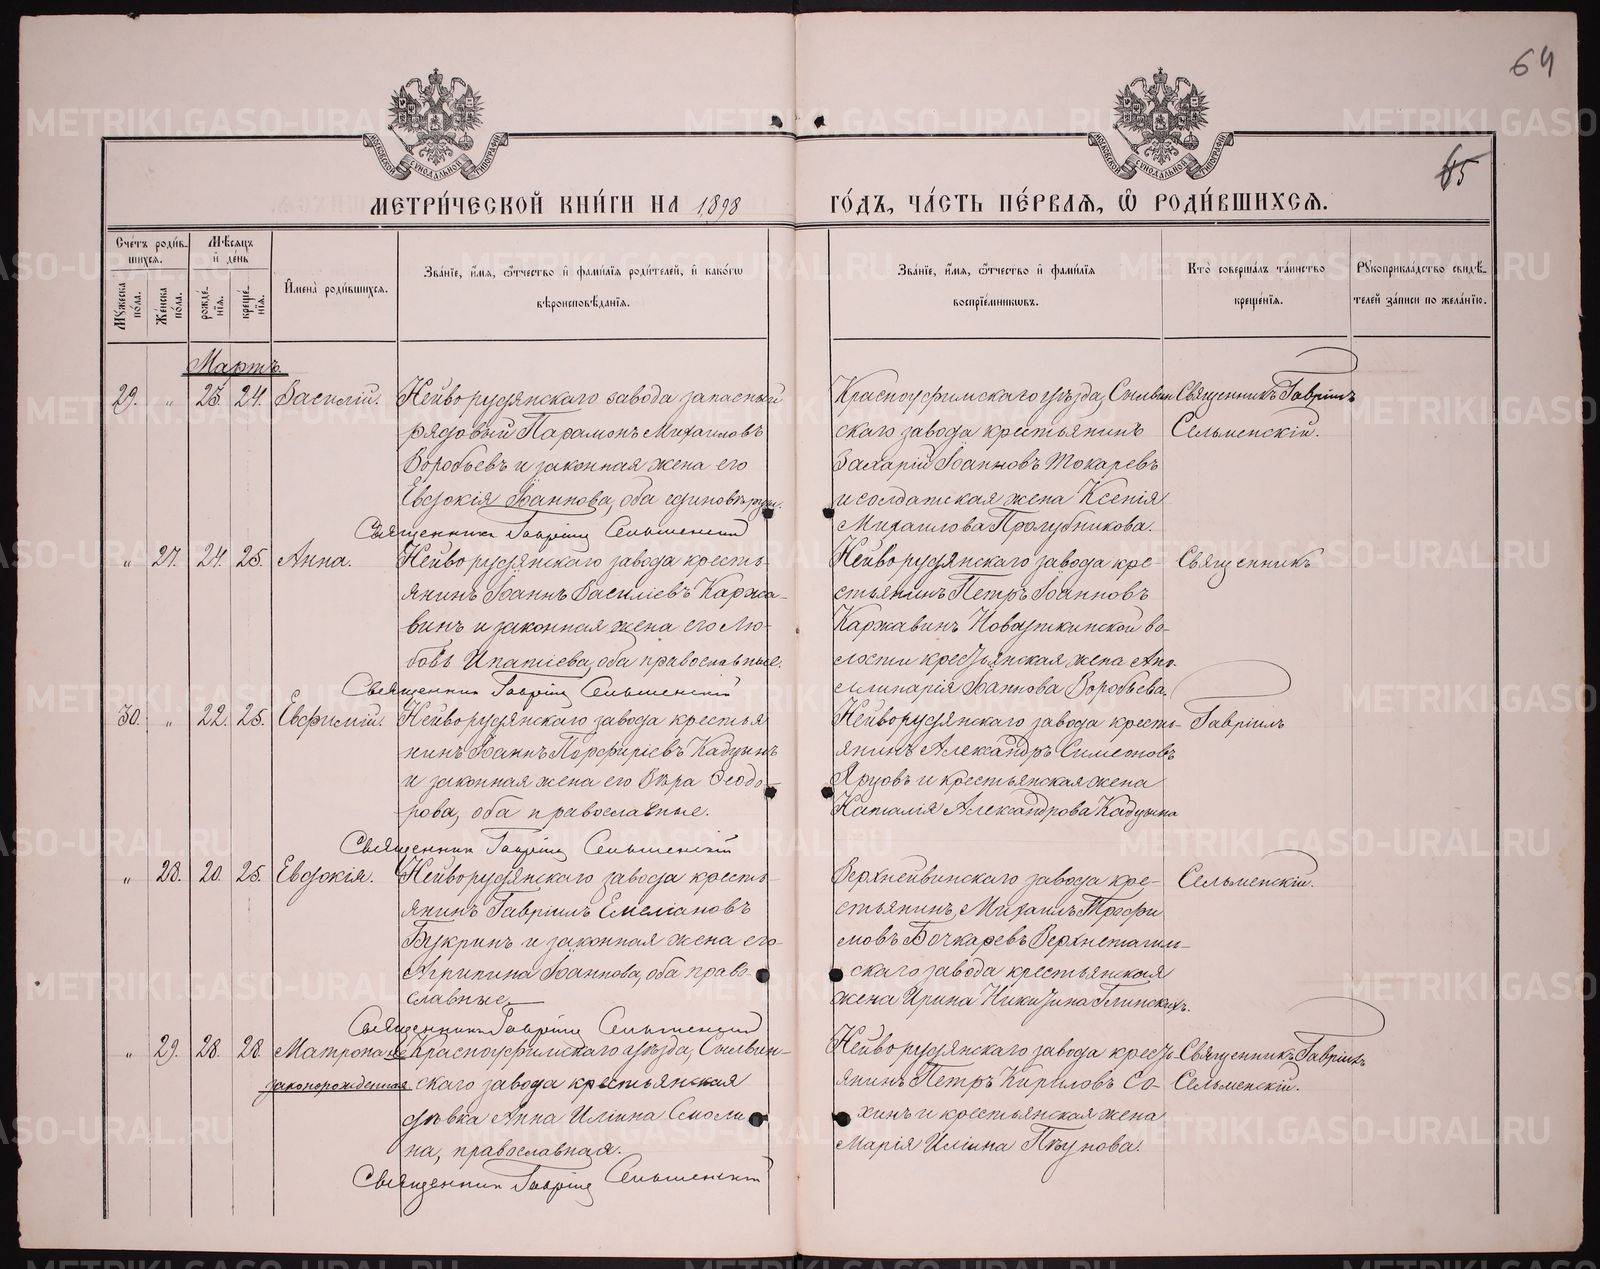 64
65
МЕТРИ́ЧЕСКОЙ КНИ́ГИ НА 1898
ГО́ДЪ, ЧА́СТЬ ПЕ́РВАѦ, Ѽ РОДИ́ВШИХСѦ.
МОСКОВСКОЙ СѴНОДАЛЬНОЙ ТИПОГРАФІИ
МОСКОВСКОЙ СѴНОДАЛЬНОЙ ТИПОГРАФІИ
Сче́тъ роди́в-
шихсѧ.
Мꙋ́жеска
пола.
Же́нска
пола.
Мѣ́сѧцъ
и҆ де́нь
рожде́-
нїѧ.
креще́-
нїѧ.
И҆мена̀ роди́вшихсѧ.
Зва́нїе, и҆́мѧ, ѻ҆́тчество и҆ фами́лїѧ роди́телей, и҆ како́гѡ
вѣроисповѣ́данїѧ.
Зва́нїе, и҆́мѧ, ѻ҆́тчество и҆ фами́лїѧ
воспрїе́мникѡвъ.
Кто̀ соверша́лъ та́инство
креще́нїѧ.
Рꙋкоприкла́дство свидѣ́-
телей за́писи по жела́нїю.
Мартъ.
29. " 23. 24. Василій.
Нейворудянскаго завода запасный
рядовый Парамонъ Михаиловъ
Воробьевъ и законная жена его
Евдокія Іоаннова, оба единовѣрцы.
Священникъ Гавріилъ Сельменскій
Красноуфимскаго уѣзда, Сылвин
скаго завода крестьянинъ
Захарій Іоанновъ Токаревъ
и солдатская жена Ксенія
Михаилова Пролубникова.
Священникъ Гавріилъ
Сельменскій.
" 27. 24. 25. Анна.
Нейворудянскаго завода кресть-
янинъ Іоаннъ Василіевъ Каржа-
винъ и законная жена его Лю-
бовь Ипатіева, оба православные.
Священникъ Гавріилъ Сельменскій
Нейворудянскаго завода кре-
стьянинъ Петръ Іоанновъ
Каржавинъ Новоуткинской во-
лости крестьянская жена Апо-
линарія Іоаннова Воробьева.
Священникъ
30. " 22. 25. Евфимій.
Нейворудянскаго завода крестья
нинъ Іоаннъ Порфиріевъ Кадцынъ
и законная жена его Вѣра Ѳеодо-
рова, оба православные.
Священникъ Гавріилъ Сельменскій
Нейворудянскаго завода кресть-
янинъ Александръ Симеоновъ
Яруовъ и крестьянская жена
Наталія Александрова Кадцына
Гавріилъ
" 28. 20. 25. Евдокія.
Нейворудянскаго завода кресть-
янинъ Гавріилъ Емеліановъ
Букринъ и законная жена его
Агрипина Іоаннова, оба право-
славные.
Священникъ Гавріилъ Сельменскій
Верхнейвинскаго завода кре-
стьянинъ, Михаилъ Трофи
мовъ Бочкаревъ Верхнетагил-
скаго завода крестьянская
жена Ирина Никитина Глинскихъ.
Сельменскій.
" 29. 28. 28. Матрона не
законорожденная
Красноуфимскаго уѣзда, Сылвин-
скаго завода крестьянская
дѣвка Анна Иліина Смоли
на, православная.
Священникъ Гавріилъ Сельменскій
Нейворудянскаго завода кресть
янинъ Петръ Кириловъ Со-
хинъ и крестьянская жена
Марія Иліина Пѣунова.
Священникъ Гавріилъ
Сельменскій.
METRIKI.GASO-URAL.RU